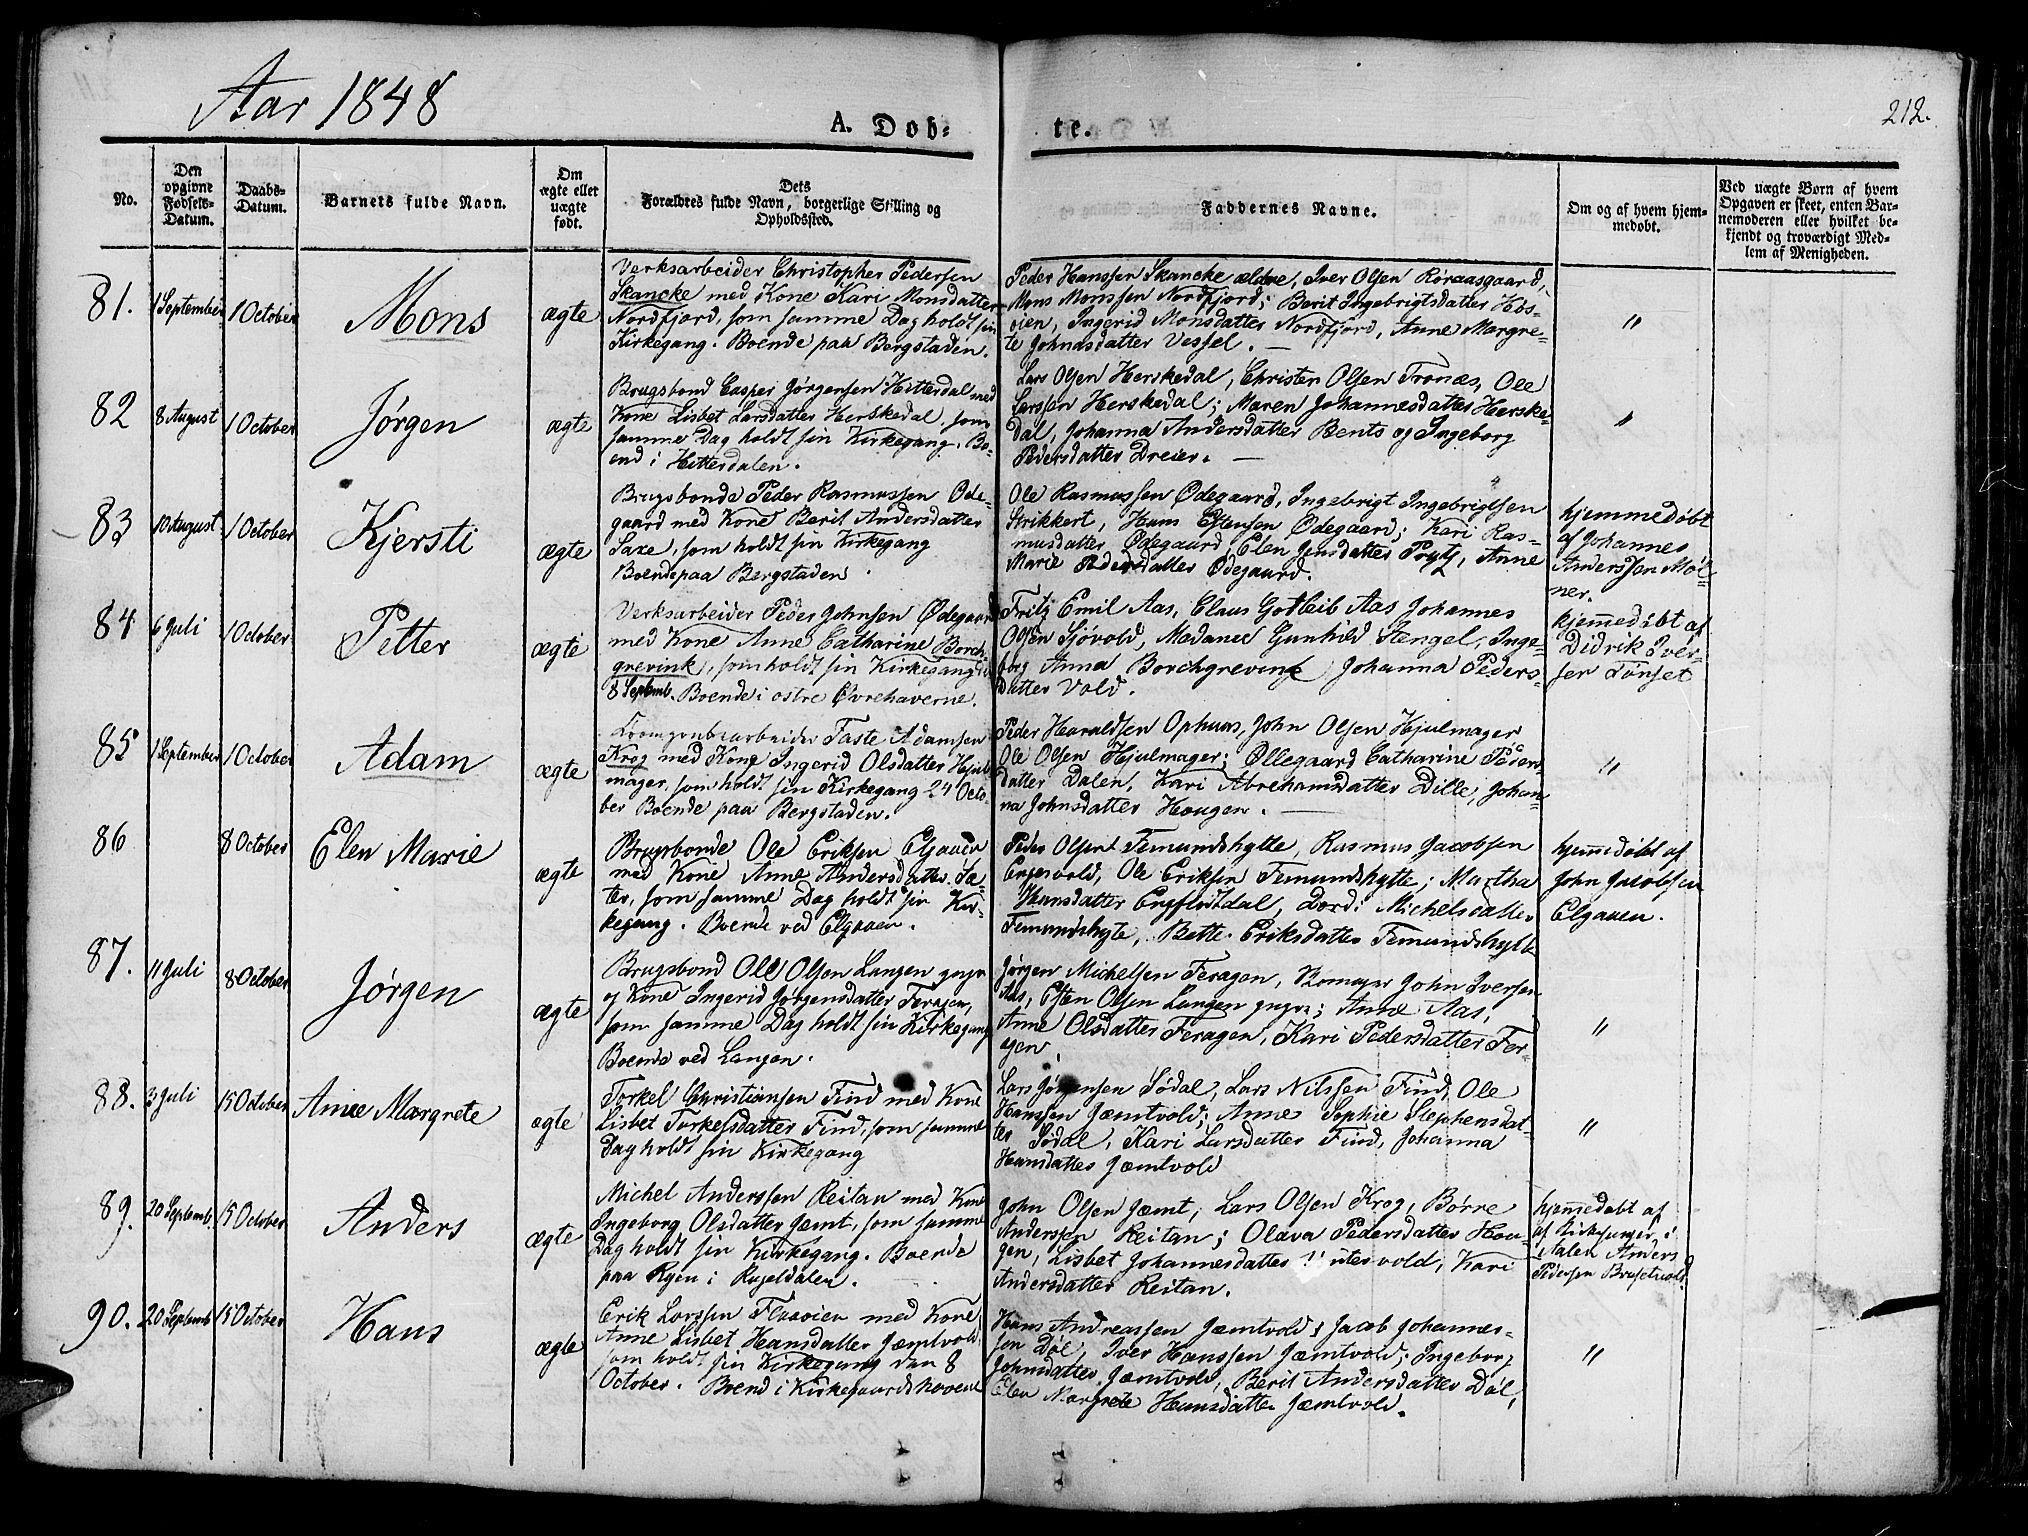 Aar 1848
212.
A. Døb-
te.
No.
Den
opgivne
Fødsels-
Datum.
Daabs-
Datum.
Barnets fulde Navn.
Om
ægte eller
uægte
født.
Dets
Forældres fulde Navn, borgerlige Stilling og
Opholdssted.
Faddernes Navne.
Om og af hvem hjem-
medøbt.
Ved uægte Børn af hvem
Opgaven er skeet, enten Bar-
nemoderen eller hvilket be-
kjendt og troværdigt Med-
lem af Menigheden.
81.
1 September
1 October
Mons
ægte
Verksarbeider Christopher Pedersen
Skancke med Kone Kari Monsdatter
Nordfjord, som samme Dag holdt sin
Kirkegang. Boende paa Bergstaden.
Peder Hanssen Skancke ældre, Iver Olsen Røraasgaard,
Mons Monssen Nordfjord; Berit Ingebrigtsdatter Heks-
sien, Ingerid Monsdatter Nordfjord, Anne Margre-
te Johnasdatter Vessel. —
"
82
8 August
1 October
Jørgen
ægte
Brugsbond Casper Jørgensen Hitterdal med
Kone Lisbet Larsdatter Herskedal som
samme Dag holdt sin Kirkegang. Bo-
end i Hitterdalen.
Lars Olsen Herskedal, Christen Olsen Tronæs, Ole
Larssen Herskedal; Maren Johannesdatter Herske-
dal, Johanna Andersdatter Bents og Ingeborg
Pedersdatter Dreier. —
"
83
10 August
1 October
Kjersti
ægte
Brugsbonde Peder Rasmussen Øde-
gaard med Kone Berit Andersdatter
Saxe, som holdt sin Kirkegang
Boende paa Bergstaden.
Ole Rasmussen Ødegaard, Ingebrigt Ingebrigtsen
Strikkert, Hans Estensen Ødegaard; Kari Ras-
musdatter Ødegaard, Elen Jensdatter Prytz, Anne
Marie Pedersdatter Ødegaard.
hjemmedøbt
af Johannes
Anderssen Møl-
ner.
84
6 Juli
1 October
Petter
ægte
Verksarbeider Peder Johnsen Ødegaard
med Kone Anne Catharine Borch-
grevink, som holdt sin Kirkegang
8 Septemb. Boende i østre Øvrehaverne.
Fritz Emil Aas, Claus Gotleib Aas Johannes
Olsen Sjøvold, Madame Gunhild Stengel, Inge-
borg Anna Borchgrevink Johanna Peders-
datter Vold.
hjemmedøbt af
Didrik Iver-
sen Tønset
85
1 September
1 October
Adam
ægte
Taste Adamsen
Krog med Kone Ingerid Olsdatter Hjul-
mager, som holdt sin Kirkegang 24 Octo-
ber Boende paa Bergstaden.
Peder Haraldsen Ophuus, John Olsen Hjulmager
Ole Olsen Hjulmager; Øllegaard Catharine Peders-
datter Dalen, Kari Abrahamsdatter Dille, Johan-
na Johnsdatter Haugen. —
"
86
8 October
Elen Marie
ægte
Brugsbonde Ole Eriksen Elgaaen
med Kone Anne Andersdatter Sæ-
ter, som samme Dag holdt sin Kir-
kegang. Boende ved Elgaaen.
Peder Olsen Femundshytte, Rasmus Jacobsen
Engesvold, Ole Eriksen Femundshytte; Martha
Hansdatter Dordi Michelsdatter
Femundshytte, Bette Eriksdatter Femundshytte
hjemmedøbt af
John Jacobsen
Elgaaen.
87.
11 Juli
8 October
Jørgen
ægte
Brugsbond Ole Olsen Langen yngre
og Kone Ingerid Jørgensdatter Feragen,
som samme Dag holdt sin Kirkegang
Boende ved Langen.
Jørgen Michelsen Feragen, John Iversen
Aas, Esten Olsen Langen yngre; Anne Aas,
Anne Olsdatter Feragen, Kari Pedersdatter Fer-
agen
"
88.
3 Juli
15 October
Anne Margrete
ægte
Torkel Christiansen Find med Kone
Lisbet Torkelsdatter Find, som samme
Dag holdt sin Kirkegang
Lars Jørgensen Sødal, Lars Nilssen Find, Ole
Hanssen Jæmtvold; Anne Sophie Stephensdat-
ter Sødal, Kari Larsdatter Find, Johanna
Hansdatter Jæmtvold
"
89.
20 Septemb.
15 October
Anders
ægte
Michel Anderssen Reitan med Kone
Ingeborg Olsdatter Jæmt, som samme
Dag holdt sin Kirkegang. Boende
paa Ryen i Rugeldalen.
John Olsen Jæmt, Lars Olsen Krog, Børre
Anderssen Reitan; Olava Pedersdatter Hau-
gen, Lisbet Johannesdatter Kari
Andersdatter Reitan.
hjemmedøbt af
af Kirkesanger i
Aalen Anders
Pedersen
90.
20 Septemb
15 October
Hans
ægte
Erik Larssen Flaaøien med Kone
Anne Lisbet Hansdatter Jæmtvold
som holdt sin Kirkegang den 8
October. Boend i Kirkegaardshovene
Hans Andreassen Jæmtvold, Jacob Johannes-
sen Døl, Iver Hanssen Jæmtvold; Ingeborg
Johnsdatter Jæmtvold, Berit Andersdatter Døl,
Elen Margrete Hansdatter Jæmtvold.
"